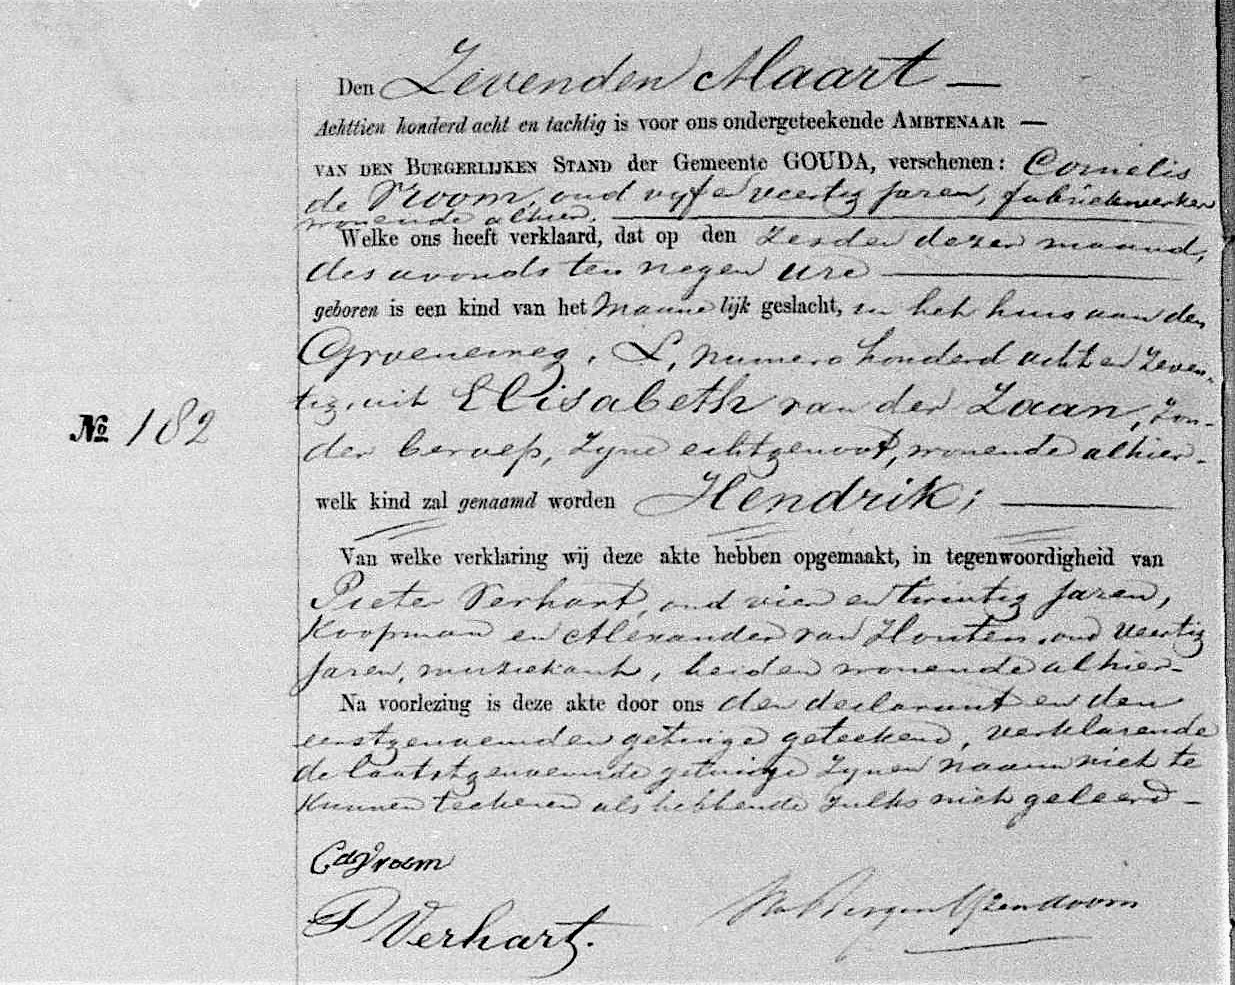 Den Zevenden Maart —
Achttien honderd acht en tachtig is voor ons ondergeteekende AMBTENAAR —
VAN DEN BURGERLIJKEN STAND der Gemeente GOUDA, verschenen: Cornelis
de Vroom, oud vyf en veertig jaren, fabriekwerker
wonende alhier. —
Welke ons heeft verklaard, dat op den zesden dezer maand,
des avonds ten negen ure —
geboren is een kind van het Mannelijk geslacht, in het huis aan den
Groeneweg, L, numero honderd acht en zeven-
tig, uit Elisabeth van der Laan, zon-
der beroep, zyne echtgenoot, wonende alhier -
No 182
welk kind zal genaamd worden Hendrik; —
Van welke verklaring wij deze akte hebben opgemaakt, in tegenwoordigheid van
Pieter Verhart, oud vier en twintig jaren,
Koopman en Alexander van Houten, oud veertig
jaren, muziekant, beiden wonende alhier -
Na voorlezing is deze akte door ons den declarant en den
eerstgenoemden getuige geteekend, verklarende
de laatstgenoemde getuige zynen naam niet te
kunnen teekenen als hebbende zulks niet geleerd -
C d Vroom
P Verhart.
IJzendoorn